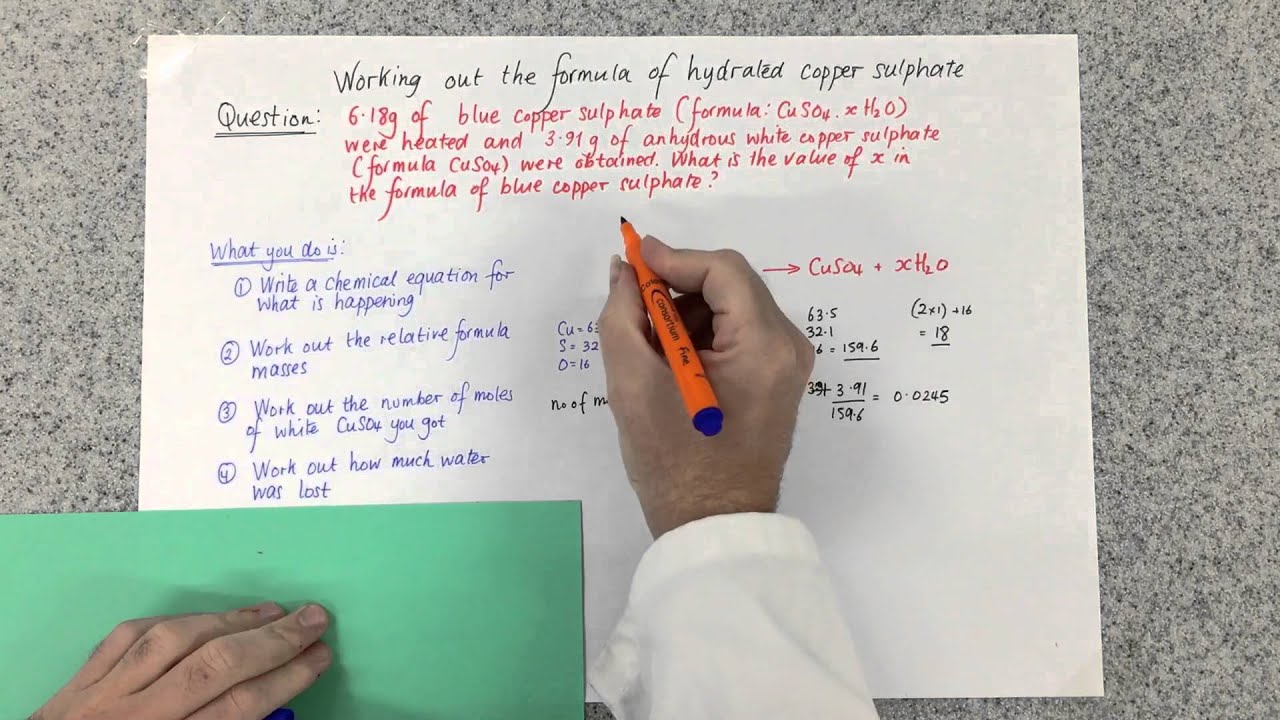 Working out the formula of hydrated copper sulphate
Question: 6.18g of blue copper sulphate (formula: CuSO4.xH2O)
were heated and 3.91g of anhydrous white copper sulphate
(formula CuSO4) were obtained. What is the value of x in
the formula of blue copper sulphate?
What you do is:
① Write a chemical equation for
what is happening
② Work out the relative formula
masses
③ Work out the number of moles
of white CuSO4 you got
④ Work out how much water
was lost
→ CuSO4 + xH2O
Cu = 63
S = 32
O = 16
63.5
32.1
= 159.6
(2x1) + 16
= 18
no of
3.91
159.6
= 0.0245
consortium Fine